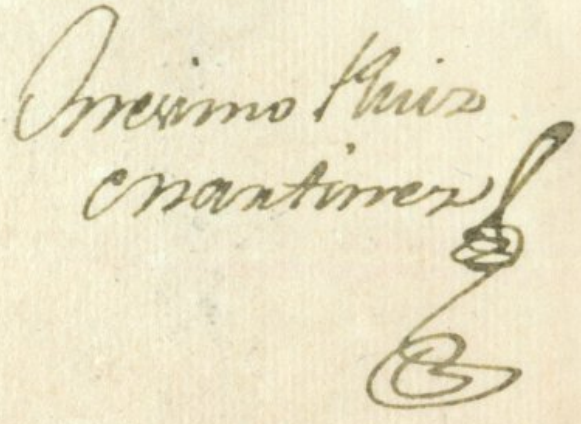 Onesimo Ruiz
Martinez